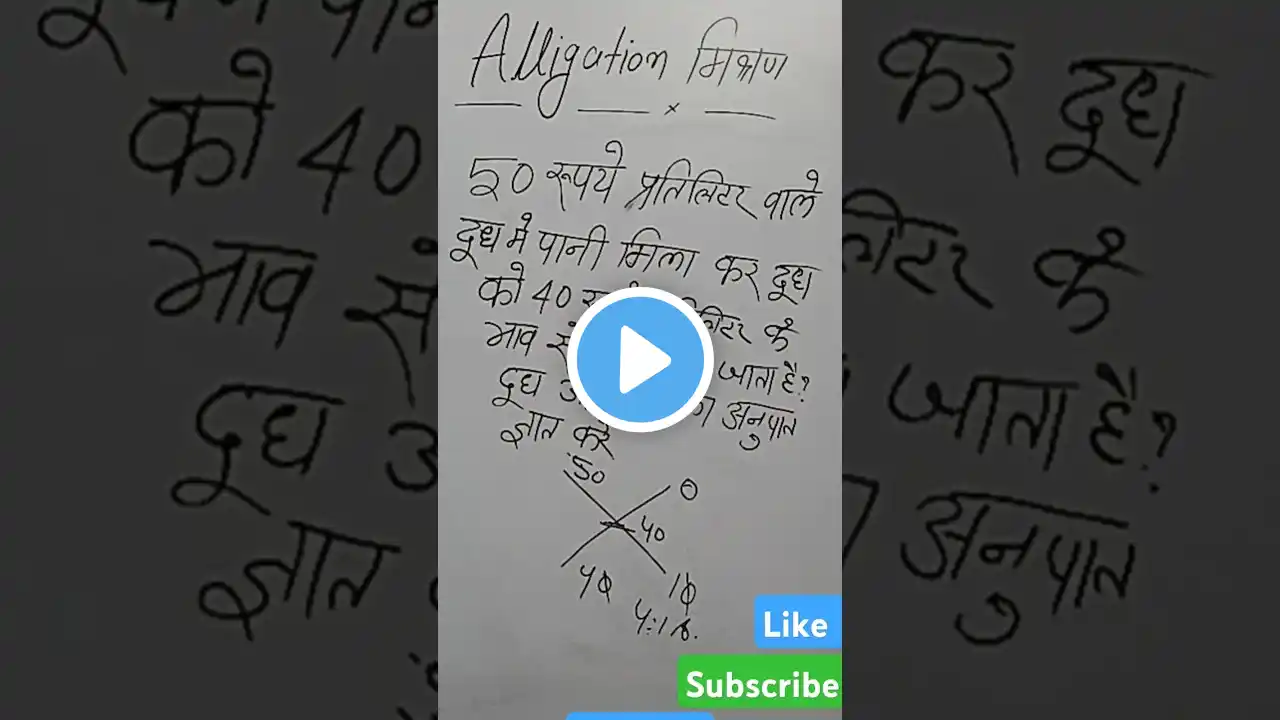 Alligation मिश्रण
50 रूपये प्रतिलिटर वाले
दूध मे पानी मिला कर दूध
को 40 के
भाव जाता है?
दूध अनुपात
ज्ञात करे
50
0
40
40
10
4:1
Like
Subscribe